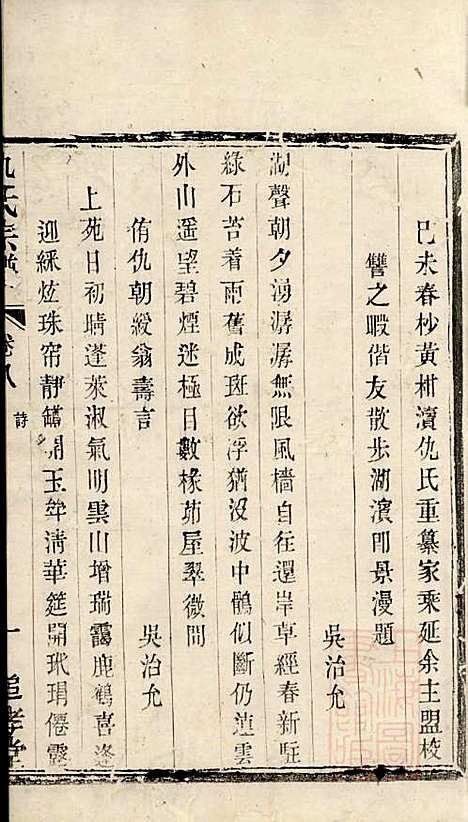 己未春杪黃柑瀆仇氏重纂家乘延余主盟校
讐之暇偕友散步湖濱卽景漫題
吳治允
湖聲朝夕湧潺潺無限風檣自往還岸草經春新駐
綠石苔着雨舊成斑欲浮猶沒波中鶻似斷仍連雲
外山遥望碧煙迷極目數椽茆屋翠微間
侑仇朝綬翁壽言
吳治允
上苑日初晴蓬萊淑氣明雲山增瑞靄鹿鶴喜逢
迎綵炫珠帘靜開玉斝淸華筵開玳瑁僊露
仇氏宗譜
卷八
詩
一
追孝堂